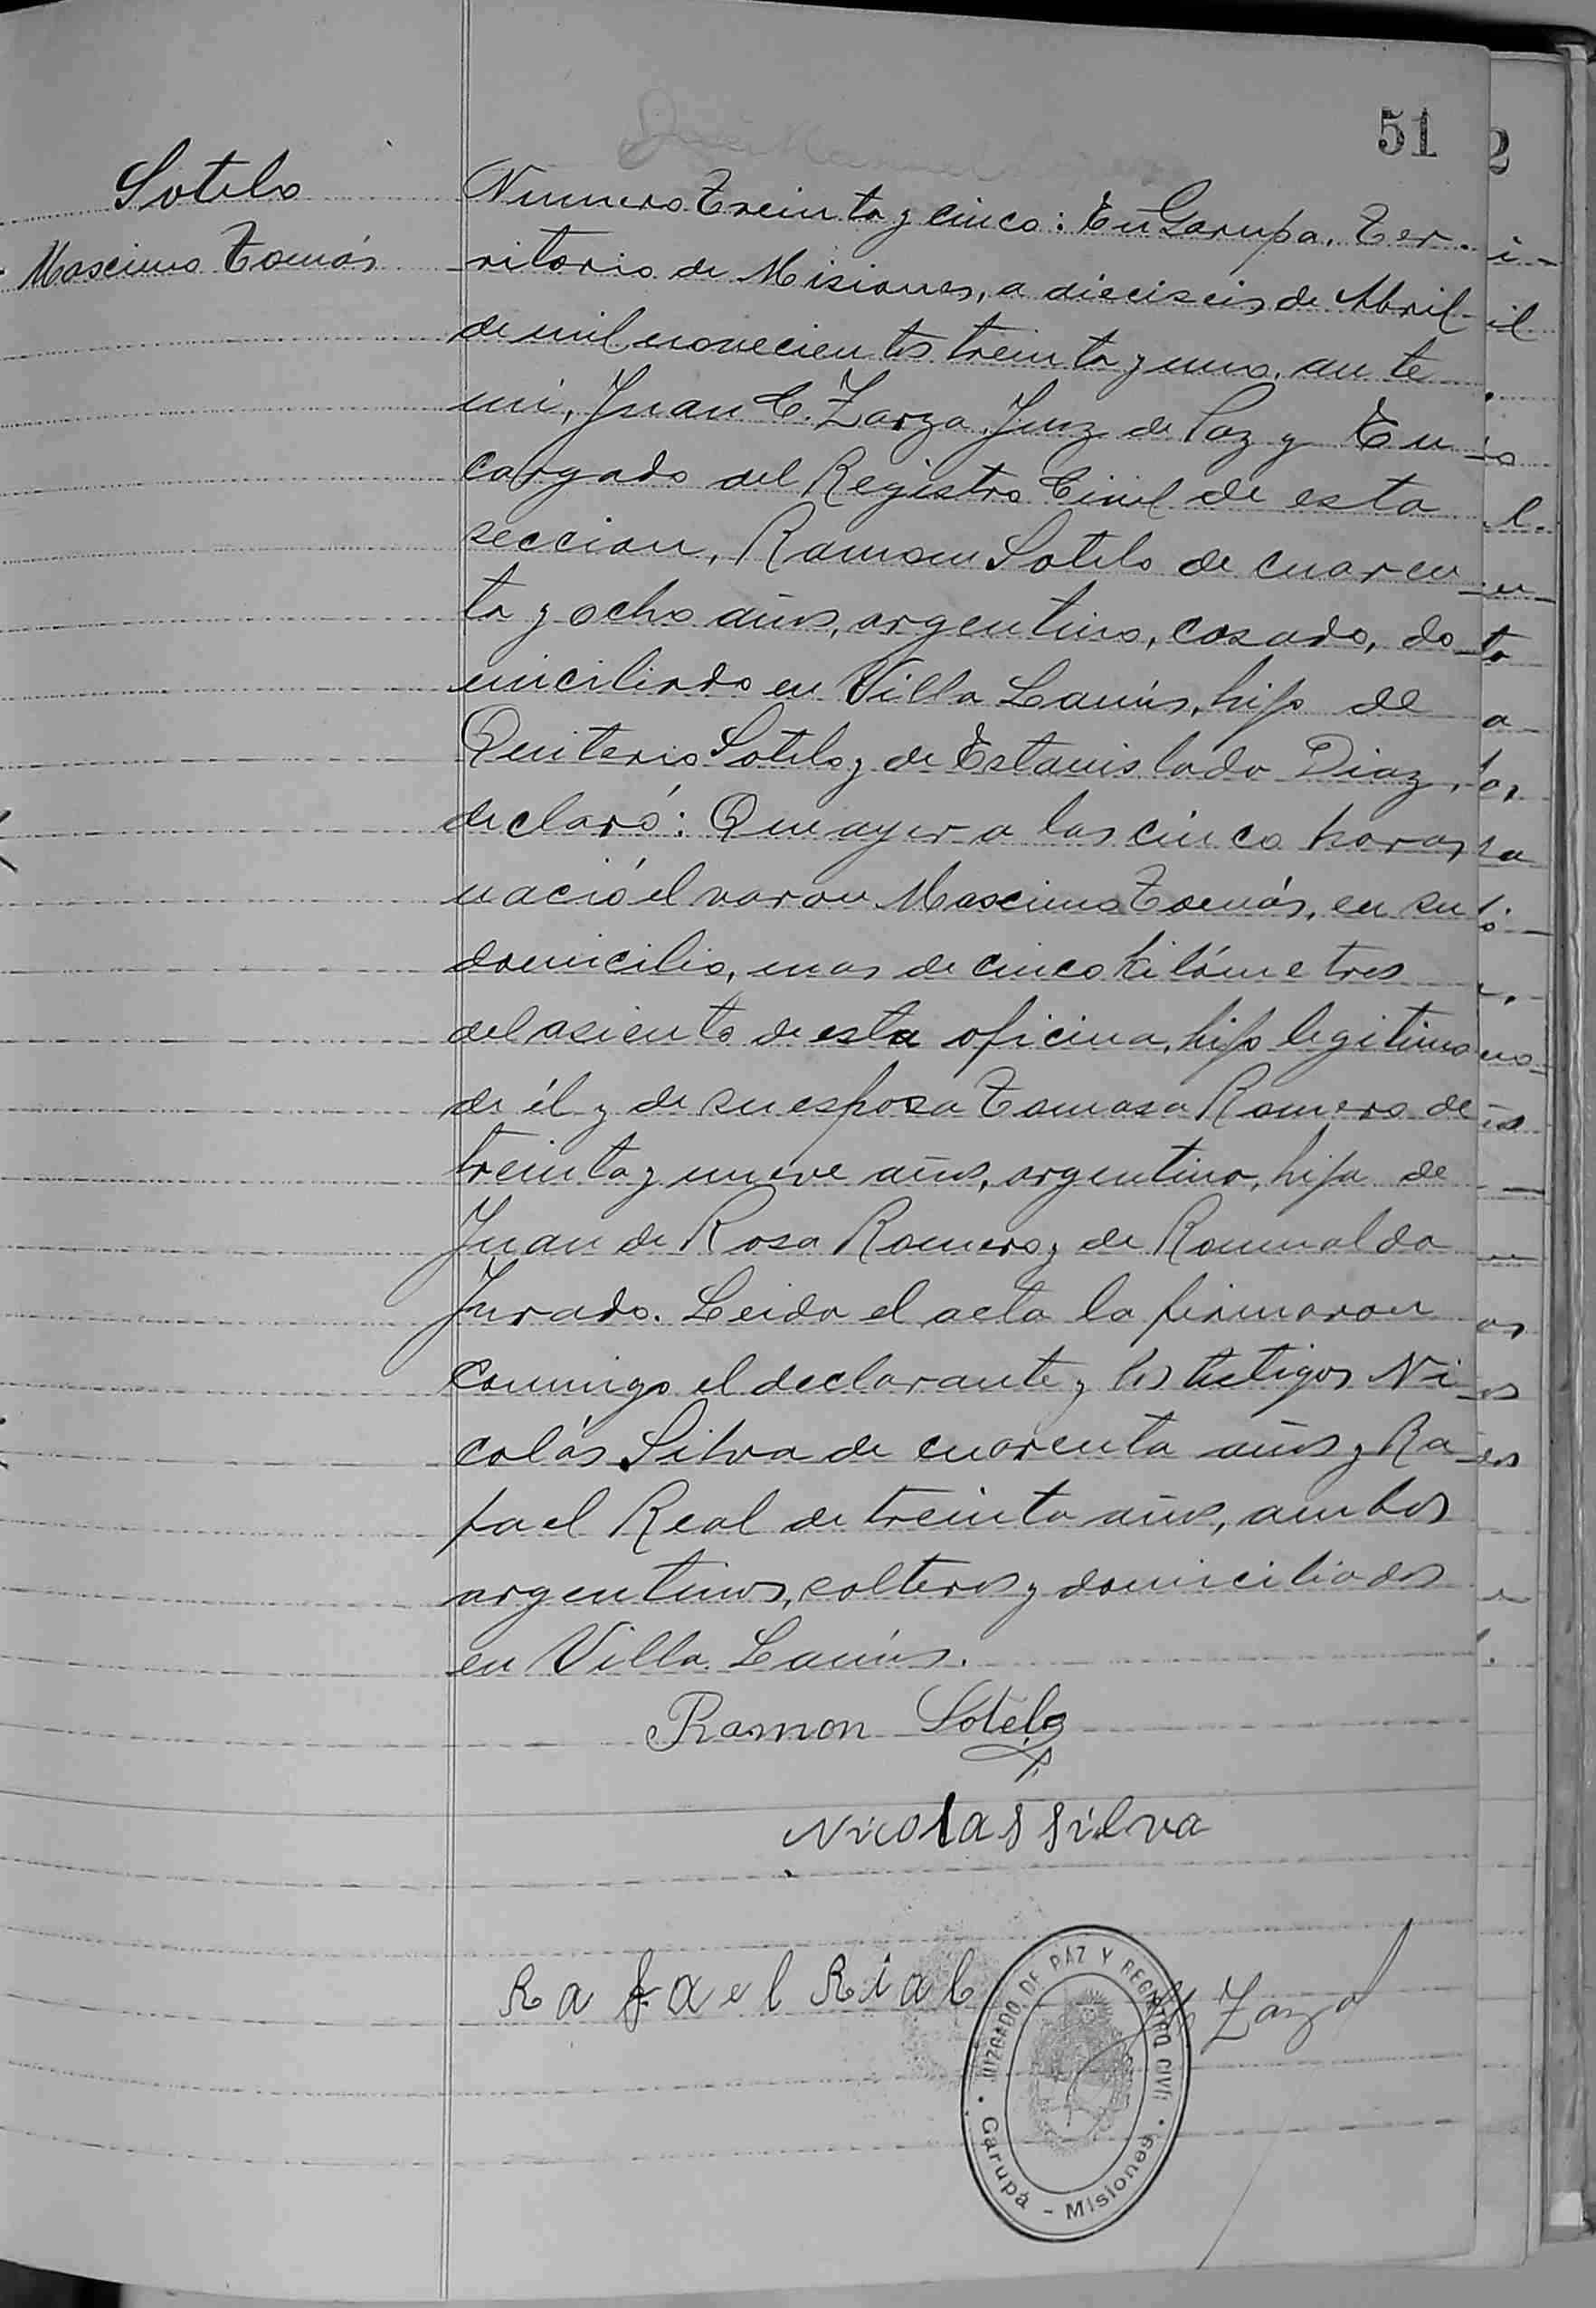 51
Sotelo
Mascimo Tomás
Numero Treinta y cinco: En Garupa, Ter-
ritorio de Misiones, a dieciseis de Abril
de mil novecientos treinta y uno, ante
mi, Juan C. Zarza, Juez de Paz y En
cargado del Registro Civil de esta
seccion, Ramon Sotelo de cuaren
ta y ocho años, argentino, casado, do
miciliado en Villa Lanús, hijo de
Quiterio Sotelo y de Estanislada Diaz,
declaró: Que ayer a las cinco horas
nació el varon Mascimo Tomás, en su
domicilio, mas de cinco kilómetros
del asiento de esta oficina, hijo legitimo
de él y de su esposa Tomasa Romero de
treinta y nueve años, argentina, hija de
Juan de Rosa Romero y de Romualda
Jurado. Leida el acta la firmaron
conmigo el declarante y los testigos Ni
colás Silva de cuarenta años y Ra
fael Real de treinta años, ambos
argentinos, solteros y domiciliados
en Villa Lanús.
Ramon Sotelo
Nicolas Silva
Rafael Rial
Zarza
JUZGADO DE PAZ Y REGISTRO CIVIL
Garupá - Misiones